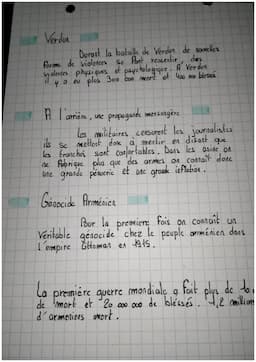 Verdun
Durant la bataille de Verdun de nouvelles
forme de violences se font ressentir, des
violences physiques et psychologique. A Verdun
y a eu plus 300 000 mort et 400 000 blessé
A l'arrière, une propagande mensongère
Les militaires censurent les journalistes
ils se mettent donc à mentir en disant que
les tranchés sont confortables. Dans les usine on
ne fabrique plus que des armes on connaît donc
une grande pénurie et une grande inflation.
Génocide Arménien
Pour la première fois on connaît un
Véritable génocide chez le peuple arménien dans
l'empire Ottoman en 1915.
La première guerre mondiale a fait plus de 10
de mort et 20 000 000 de blessés. 1,2 million
d'arméniens mort.